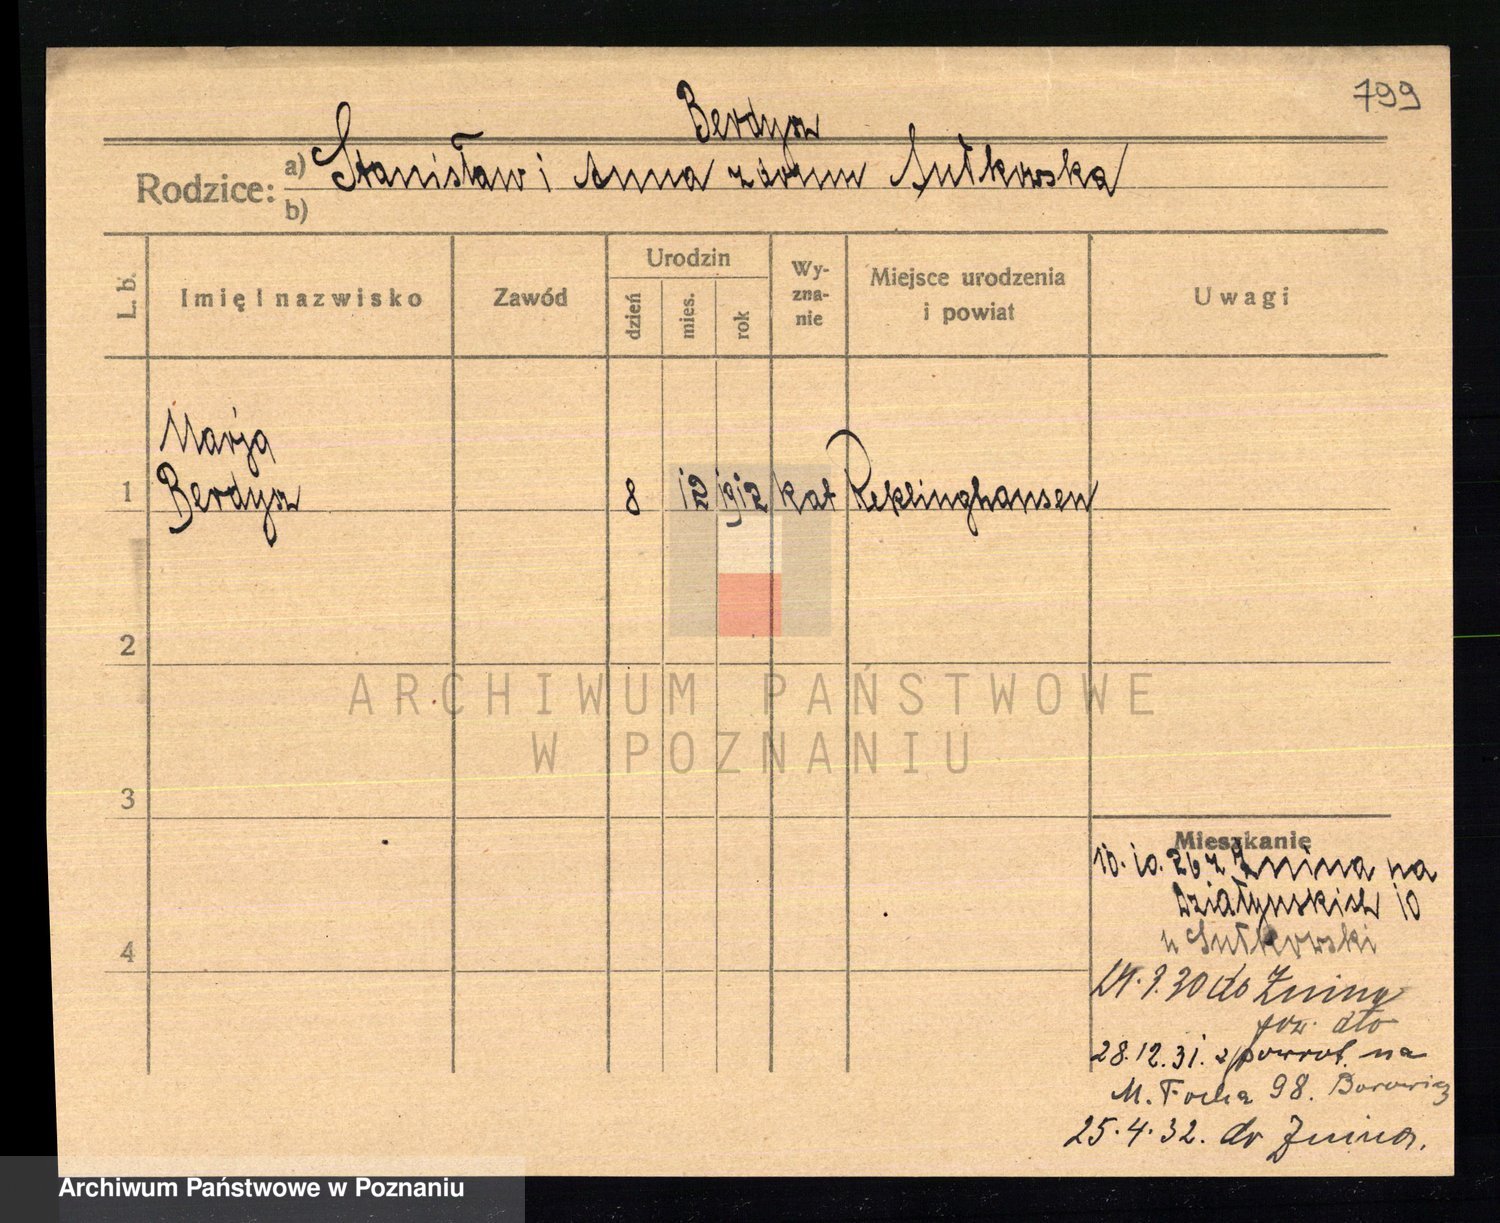 799
Berdysz
Rodzice: a) Stanisław i Anna z domu Sułkowska
b)
L. b. Imię i nazwisko Zawód Urodzin dzień mies. rok Wy-zna-nie Miejsce urodzenia i powiat Uwagi
Marja
1 Berdysz 8 12 1912 kat Reklinghausen
2
ARCHIWUM PAŃSTWOWE
W POZNANIU
3
Mieszkanie
10. 10. 26 z Żnina na
Działyńskich 10
u Sułkowski
4
do Żnina
28.12.31. z powrot. na
M. Focha 98.
25.4.32. do Żnina.
Archiwum Państwowe w Poznaniu